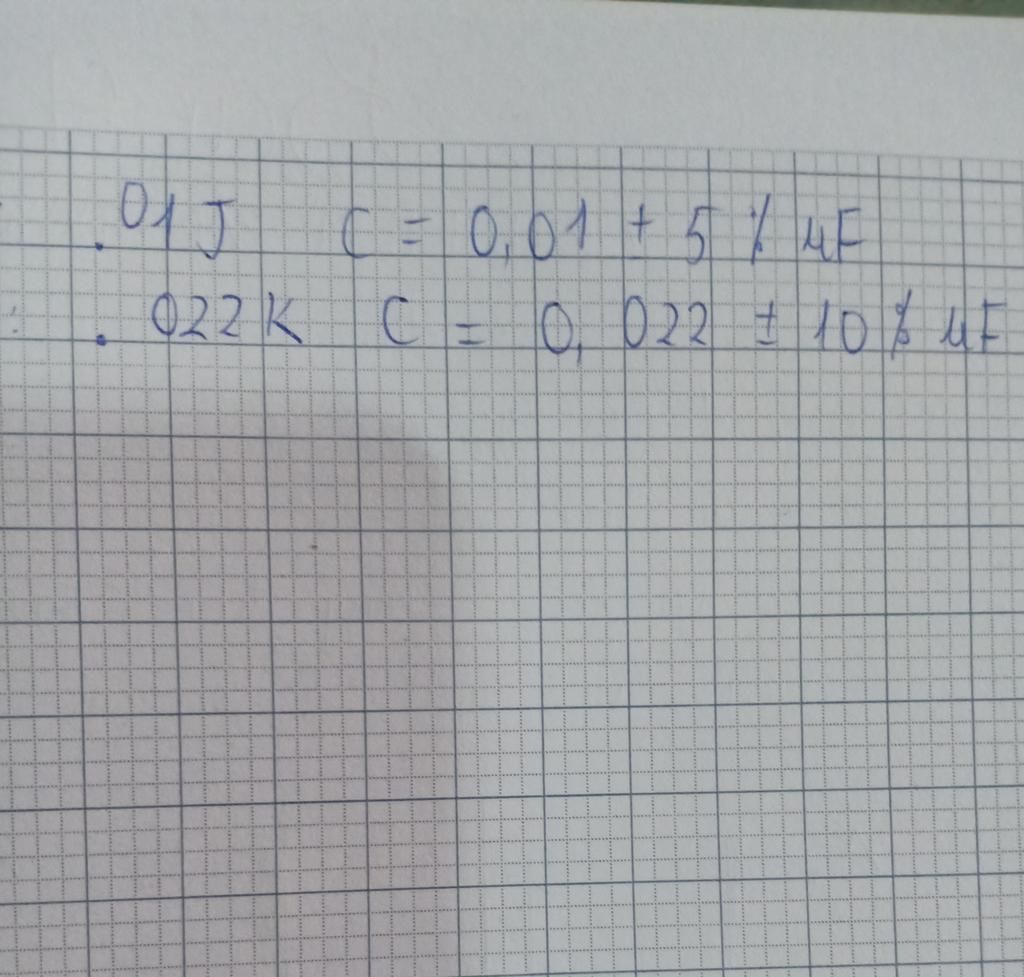 .01J C = 0,01 + 5 % µF
.022K C = 0,022 ± 10 % µF